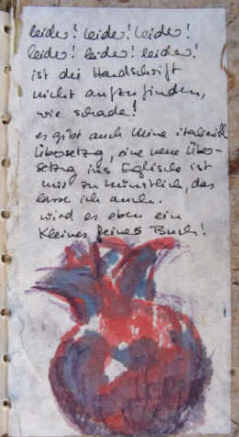 leider! leider! leider!
leider! leider! leider!
ist die Handschrift
nicht aufzufinden,
wie schade!
es gibt auch keine italien.
Übersetzg, eine neue Über-
setzung ins Englische ist
mir zu mühsam, das
lasse ich auch.
wird es eben ein
kleines feines Buch!